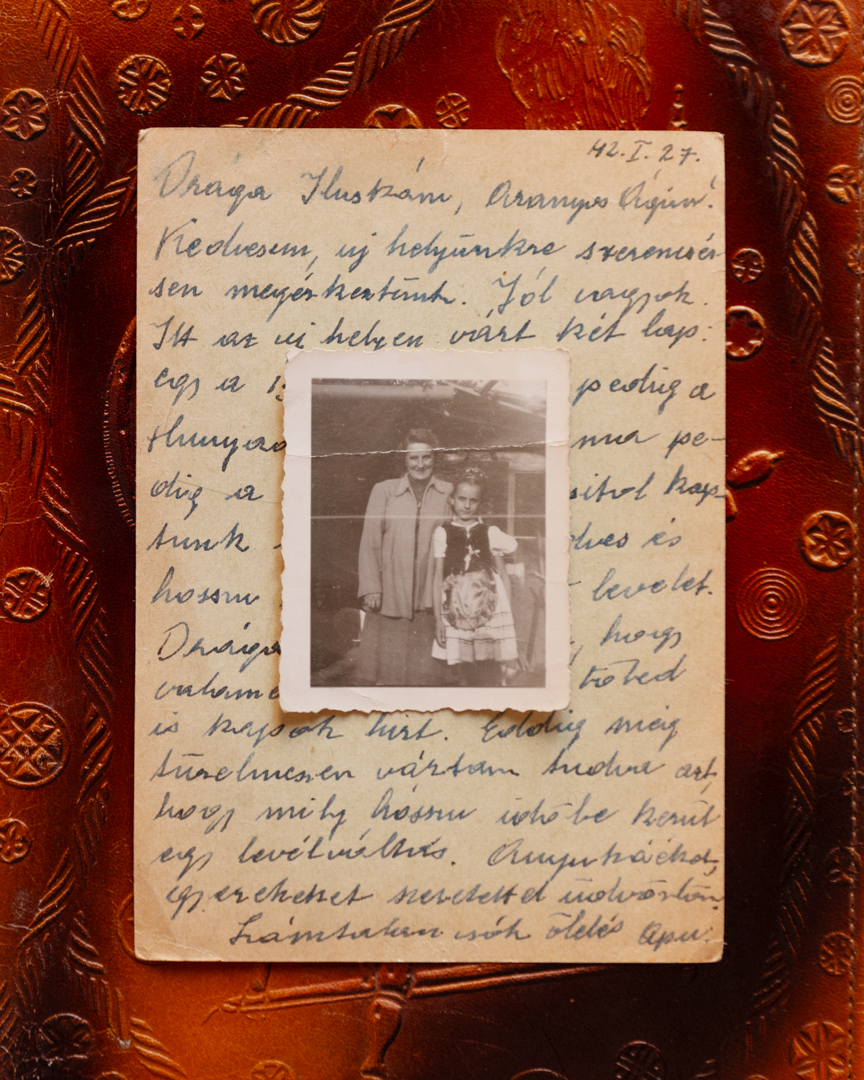 42. I. 27.
Drága Iluskám, Aranyos Ágim!
Kedvesem, uj helyünkre szerencsé-
sen megérkeztünk. Jól vagyok.
Itt az uj helyen várt két lap:
egy a pedig a
pe-
dig a kap-
tunk és
hosszu levelet.
Drága hogy
tőled
is kapok hirt. Eddig még
türelmesen vártam tudva azt,
hogy mily hosszu időbe kerül
egy levélváltás. Anyukáékat,
gyerekeket szeretettel üdvözlöm.
Számtalan csók ölelés Apu.